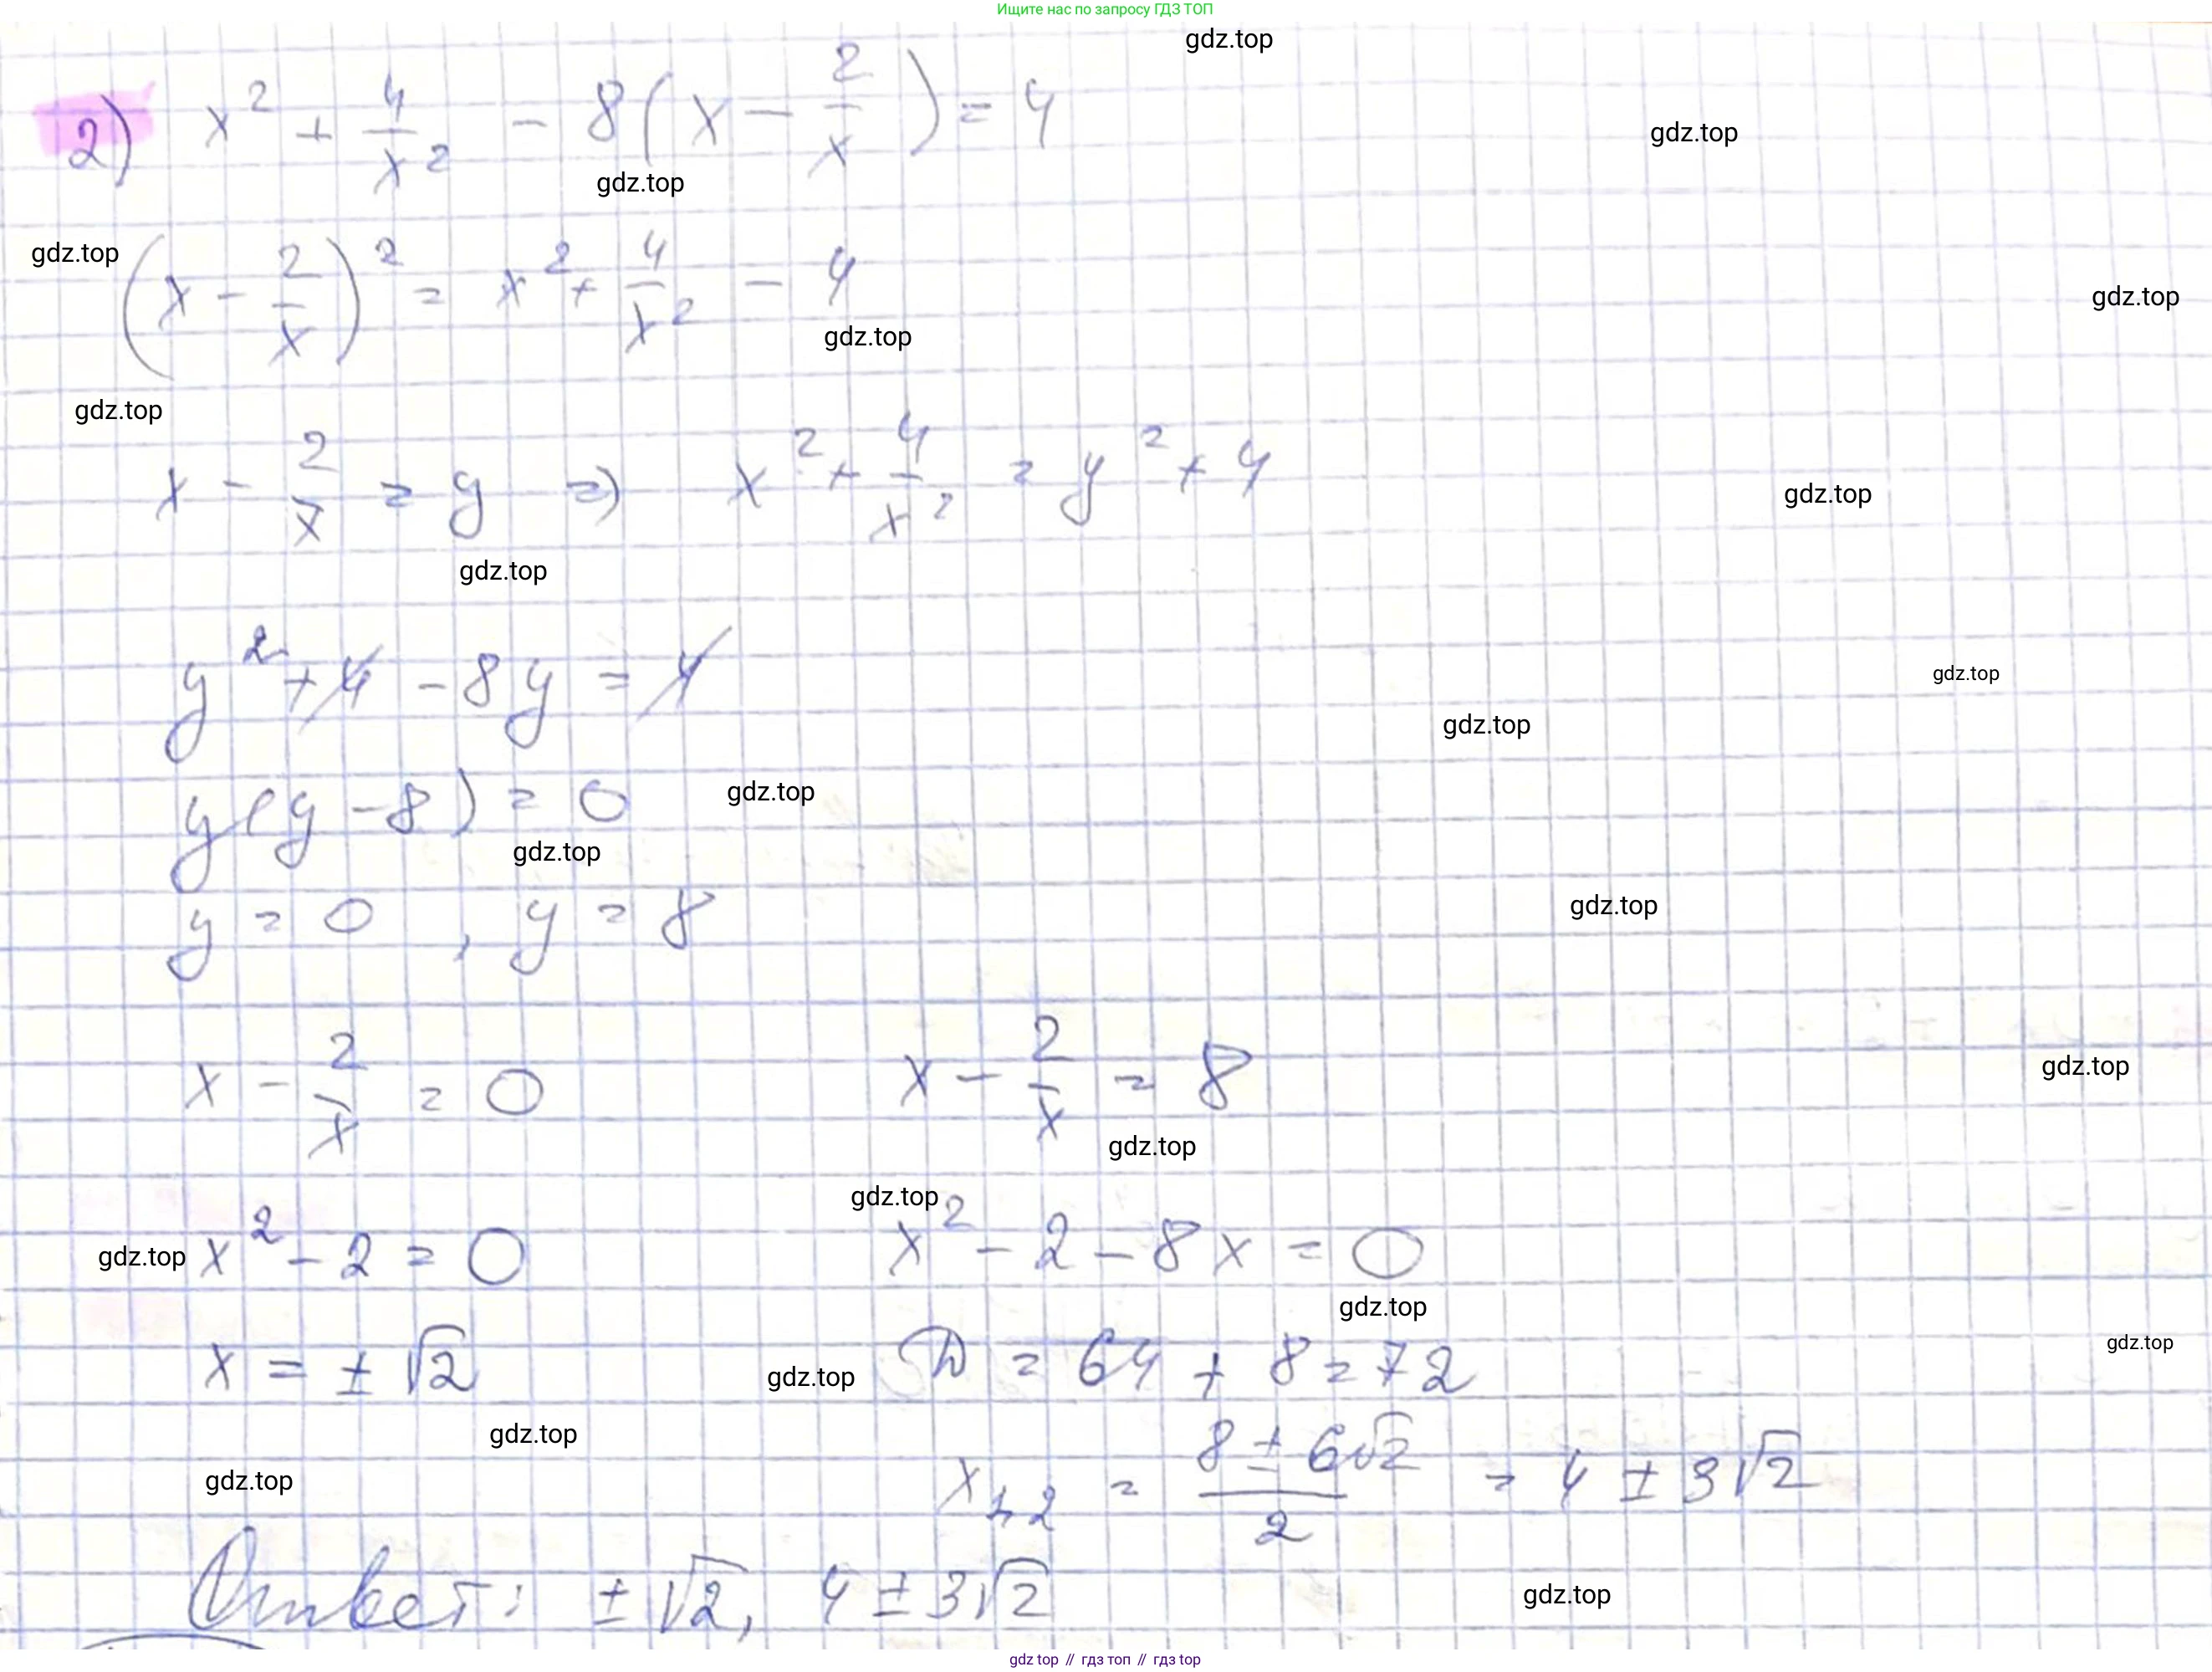 Ищите нас по запросу ГДЗ ТОП
gdz.top
2) x² + 4/x² - 8(x - 2/x) = 4
gdz.top
gdz.top
gdz.top
(x - 2/x)² = x² + 4/x² - 4
gdz.top
gdz.top
gdz.top
x - 2/x = y => x² + 4/x² = y² + 4
gdz.top
gdz.top
y² + 4 - 8y = 4
gdz.top
gdz.top
y(y - 8) = 0
gdz.top
gdz.top
y = 0 , y = 8
gdz.top
x - 2/x = 0 x - 2/x = 8
gdz.top
gdz.top
gdz.top
gdz.top
x² - 2 = 0 x² - 2 - 8x = 0
gdz.top
gdz.top
x = ± √2 D = 64 + 8 = 72
gdz.top
gdz.top
gdz.top
x1,2 = (8 ± 6√2)/2 = 4 ± 3√2
Ответ: ± √2, 4 ± 3√2
gdz.top
gdz top // гдз топ // гдз top